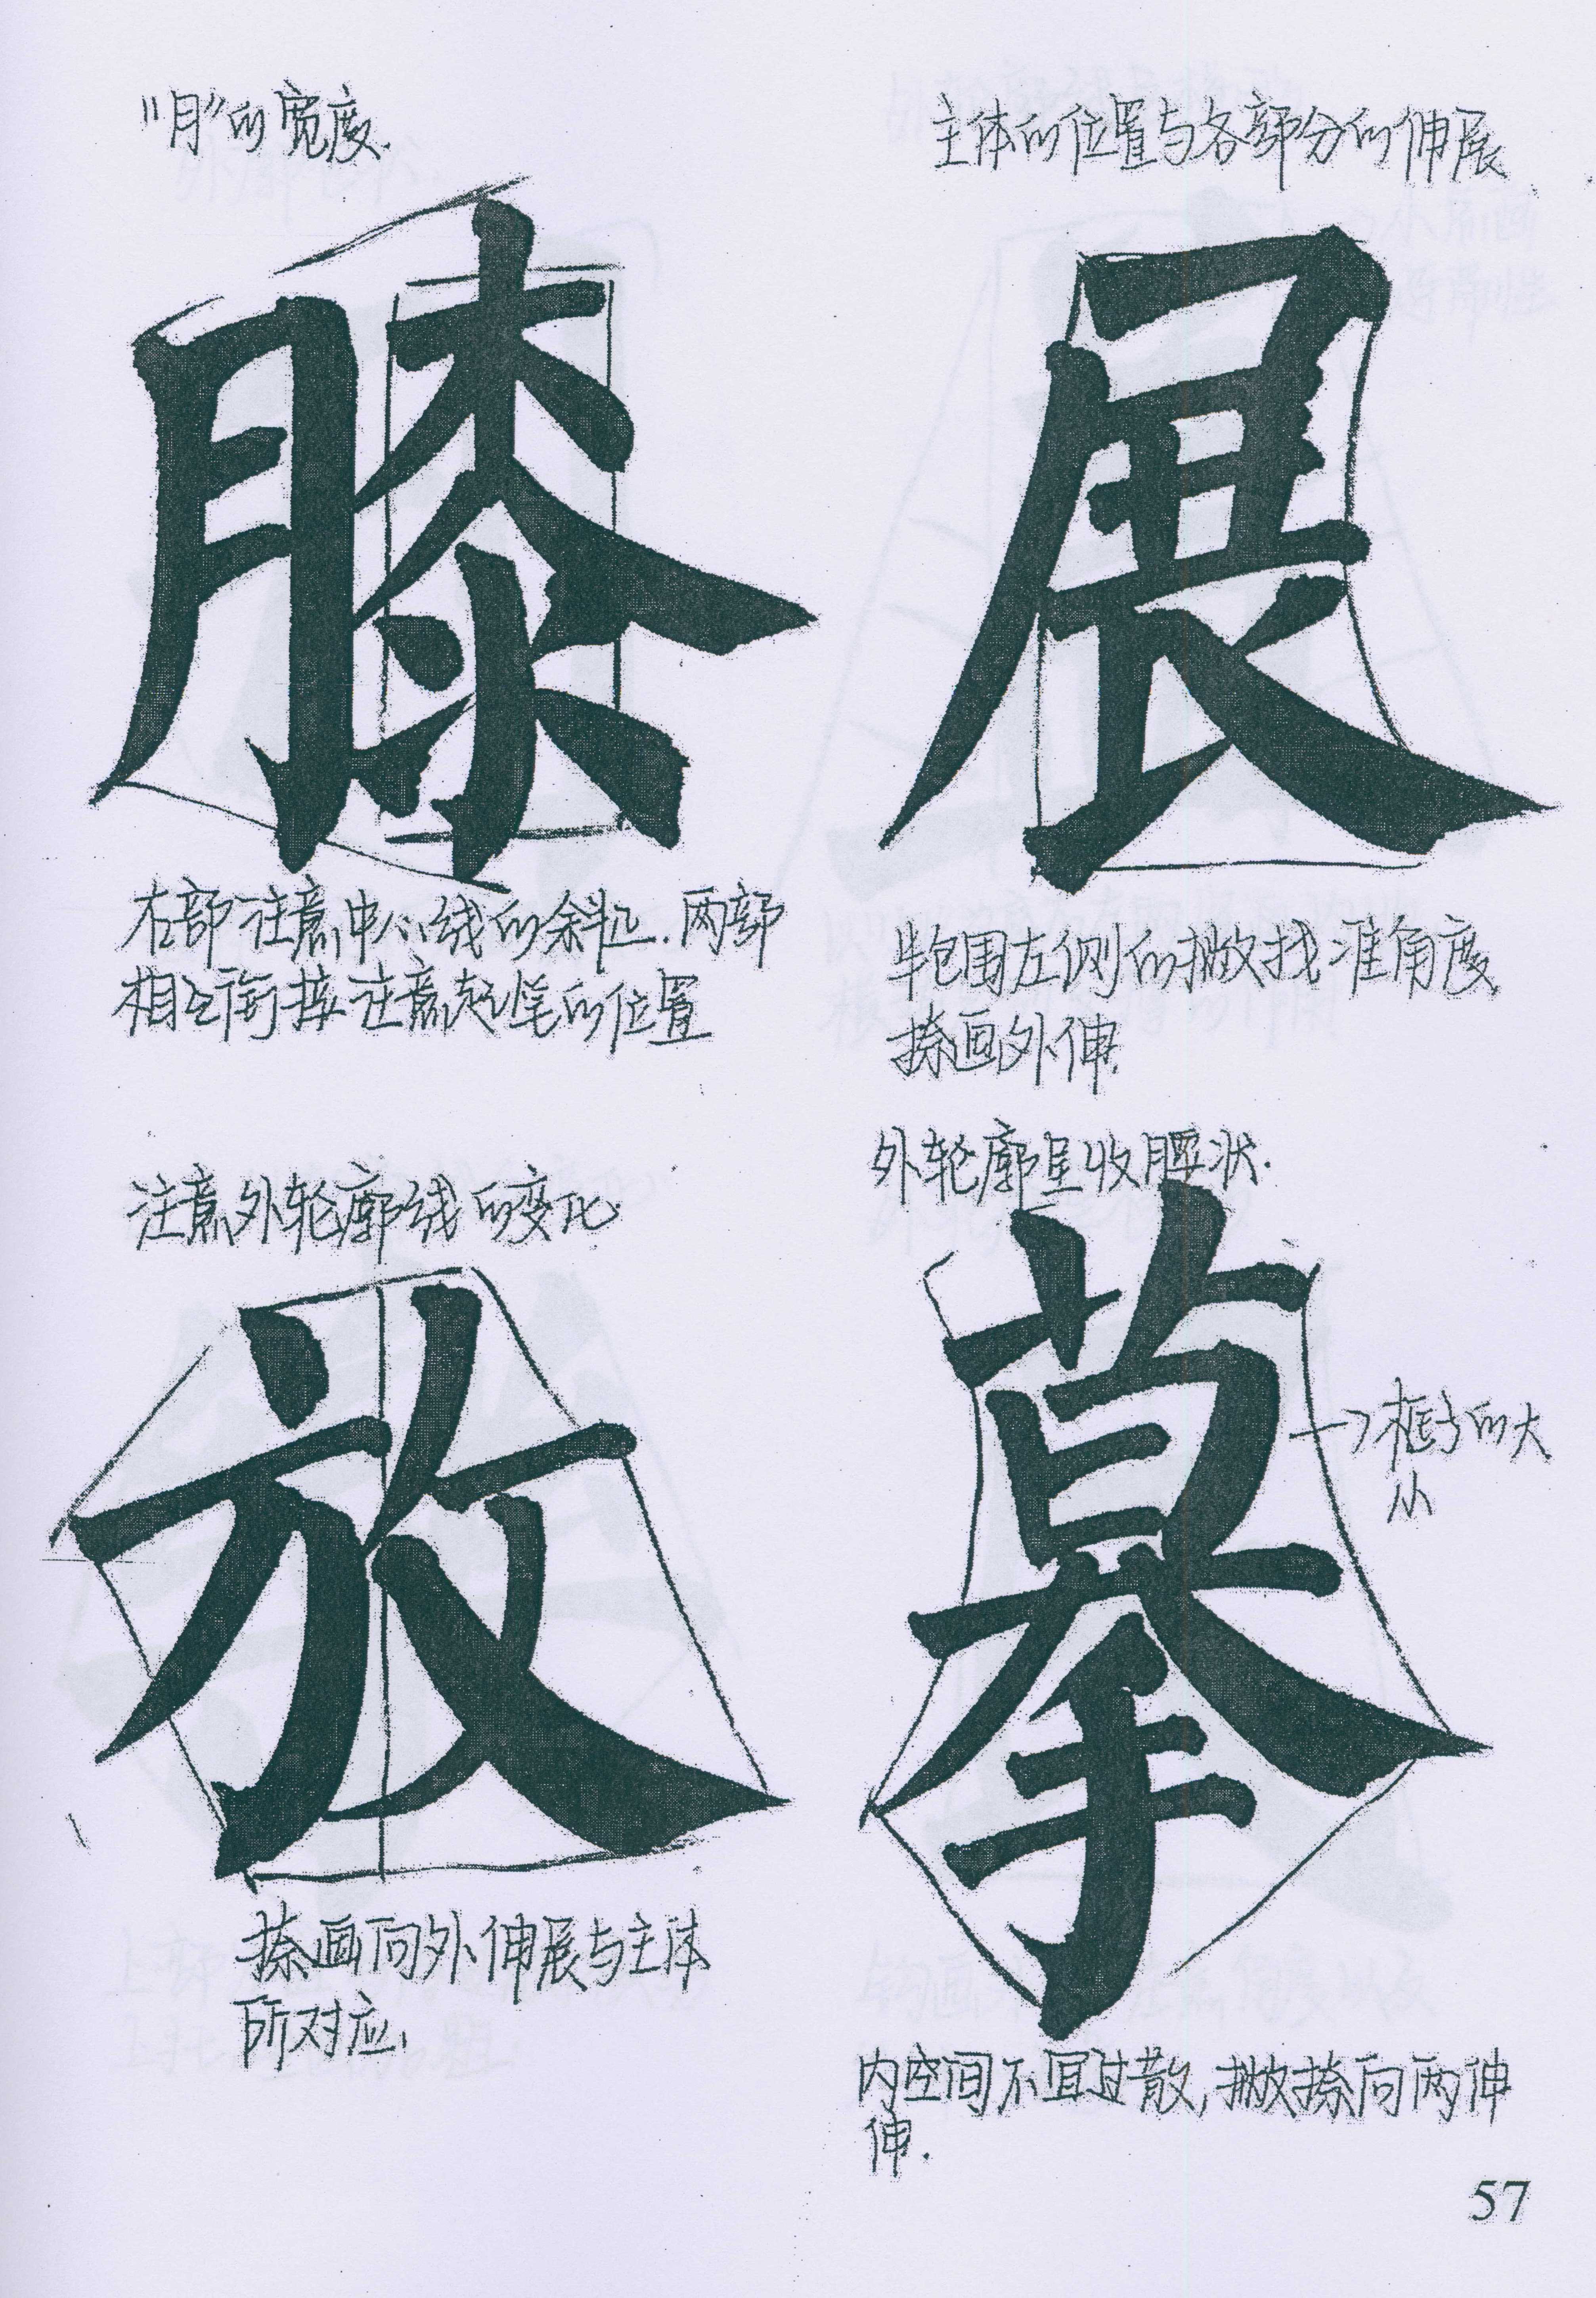 "月"的宽度.
膝
右部注意中心线的斜正.两部
相互衔接注意起笔的位置
主体的位置与各部分的伸展
展
半包围左侧的撇找准角度,
捺画外伸.
注意外轮廓线的变化
放
捺画向外伸展与主体
所对应,
外轮廓呈收腰状.
摹
→框子的大
小
内空间不宜过散,撇捺向两伸
伸.
57